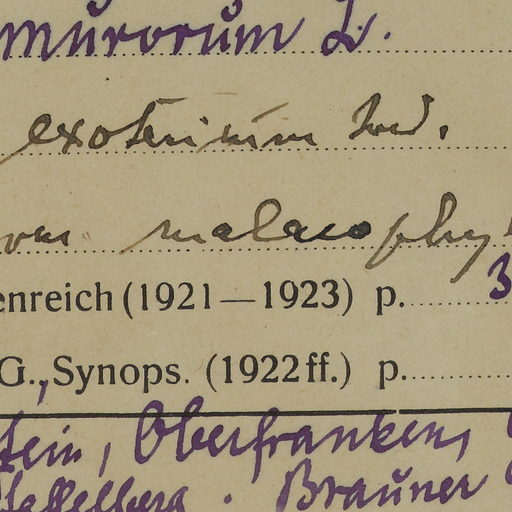 murorum L.
exotericum Jord.
var. malacophy
enreich (1921—1923) p. 3
G., Synops. (1922 ff.) p.
tein, Oberfranken,
Staffelberg. Brauner